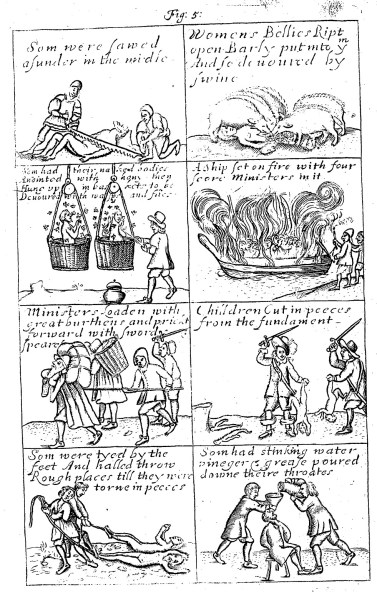 Fig: 5:
Som were sawed
asunder in the midle
Womens Bellies Ript
open Barly put into ym
And so devoured by
swine
Som had their naked bodies
Anointed with hony then
Hung up in baskets to be
Devoured with wasps and flies
A ship set on fire with four
score Ministers in it
Ministers Loaden with
great burthens and prickt
forward with swords
speares
Children Cut in peeces
from the fundament
Som were tyed by the
feet And halled throw
Rough places till they were
torne in peeces
Som had stinking water
vineger & grease poured
downe theire throates